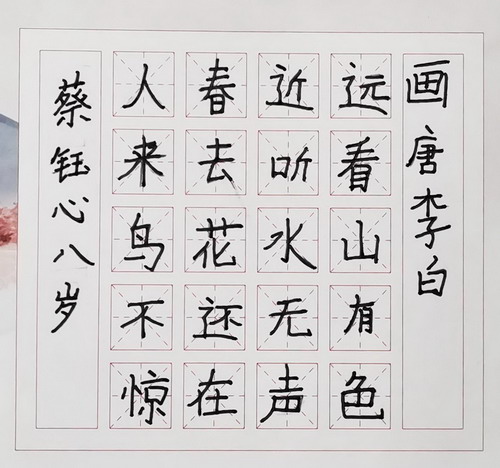 画唐李白
远看山有色
近听水无声
春去花还在
人来鸟不惊
蔡钰心八岁